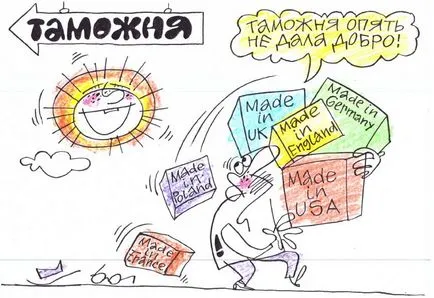 ТАМОЖНЯ
ТАМОЖНЯ ОПЯТЬ
НЕ ДАЛА ДОБРО!
Made
in
UK
Made
in
England
Made
in
Germany
Made
in
Poland
Made
in
USA
Made
in
France